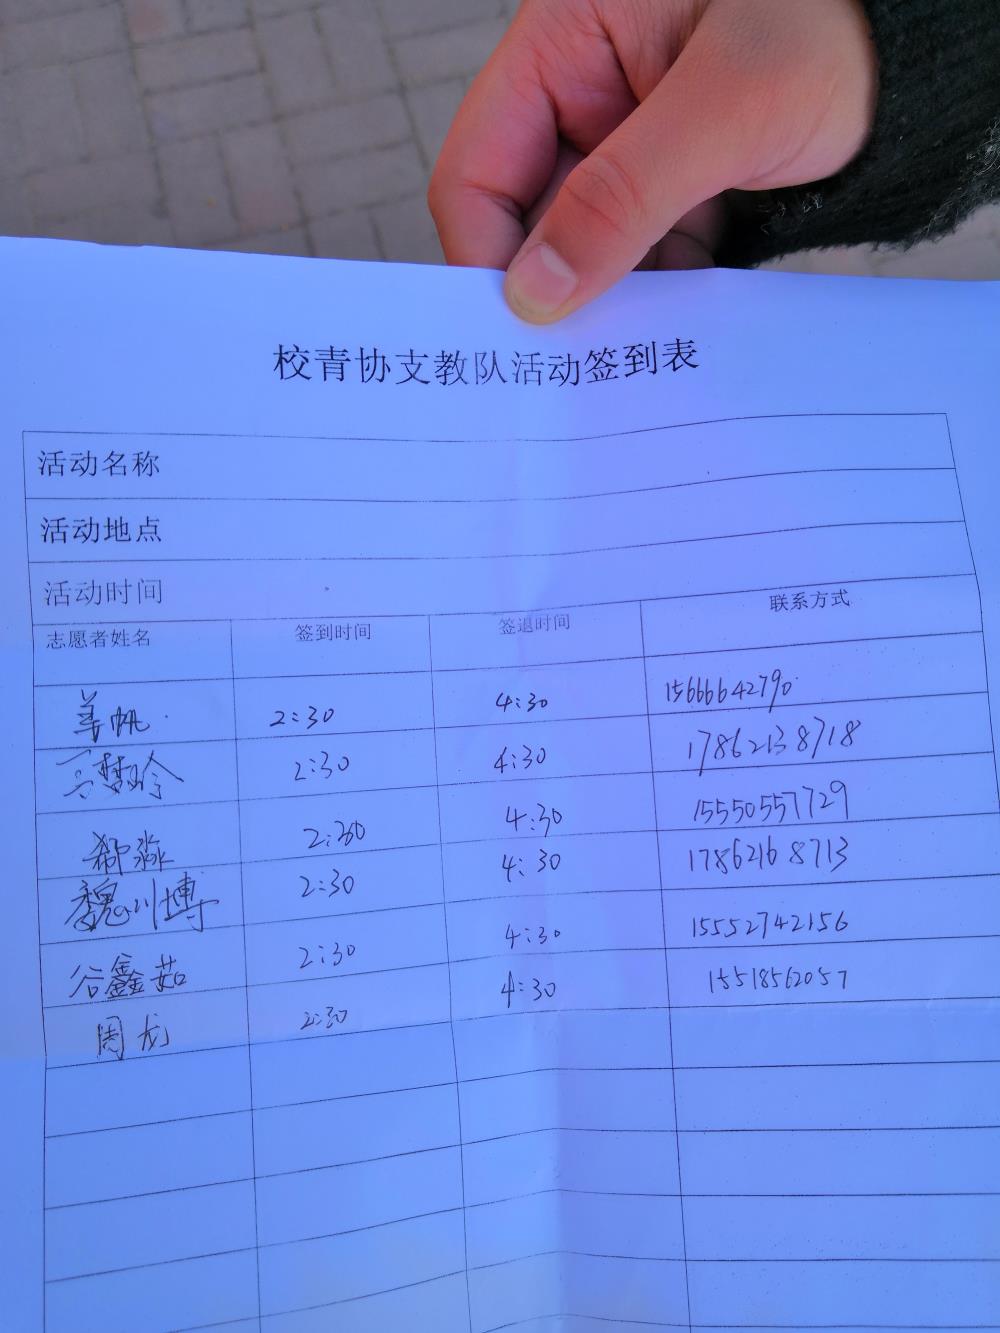 校青协支教队活动签到表
活动名称
活动地点
活动时间
志愿者姓名 签到时间 签退时间 联系方式
姜帆 2:30 4:30 15666642790
梦玲 2:30 4:30 17862138718
郗淼 2:30 4:30 15550557729
魏川博 2:30 4:30 17862168713
谷鑫茹 2:30 4:30 15552742156
周龙 2:30 4:30 15518562057